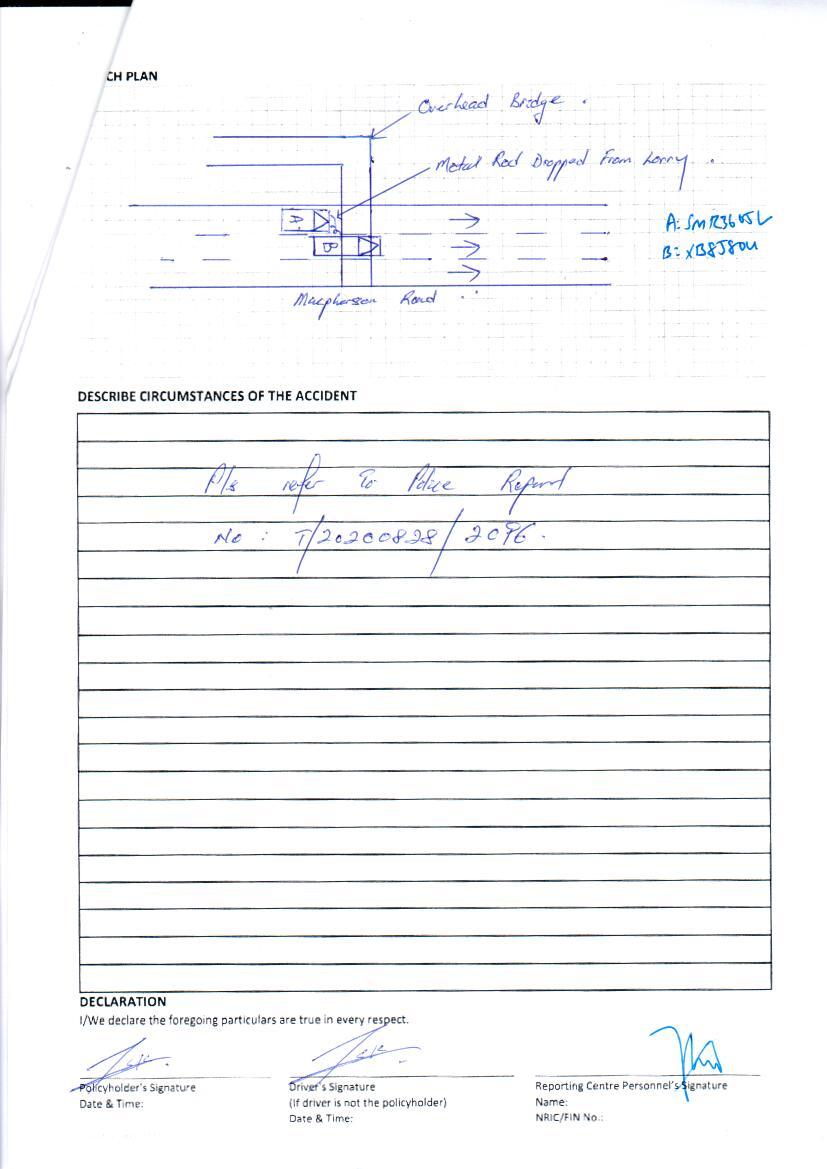 CH PLAN
Overhead Bridge .
Metal Rod Dropped From Lorry .
A: SMR3605L
A
B: XB8580U
B
Macpherson Road
DESCRIBE CIRCUMSTANCES OF THE ACCIDENT
Pls refer To Police Report
No : T/20200828/2096.
DECLARATION
I/We declare the foregoing particulars are true in every respect.
Policyholder's Signature
Date & Time:
Driver's Signature
(If driver is not the policyholder)
Date & Time:
Reporting Centre Personnel's Signature
Name:
NRIC/FIN No.: